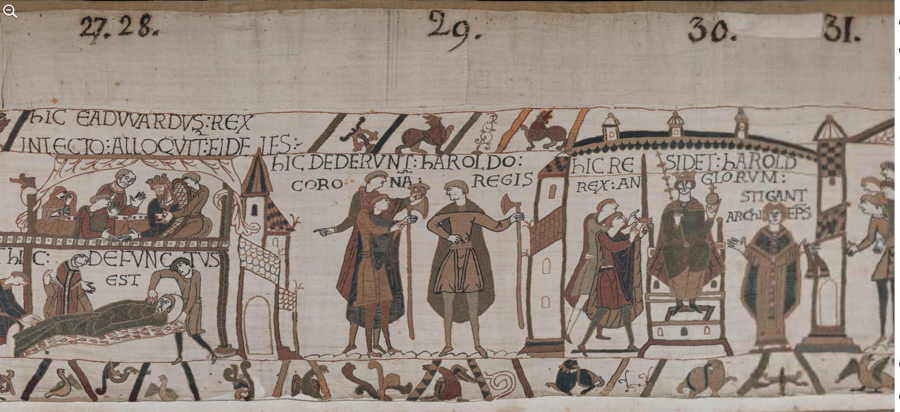 27. 28.
29.
30.
31.
hIC EADVVARDVS:REX
INLECTO:ALLOQVIT:FIDELES:
hIC: DEFUNCTUS
EST
hIC DEDERVNT:hAROLDO:
CORONA: REGIS
hIC RESIDET:hAROLD
REX:ANGLORVM:
STIGANT
ARCHIEPS